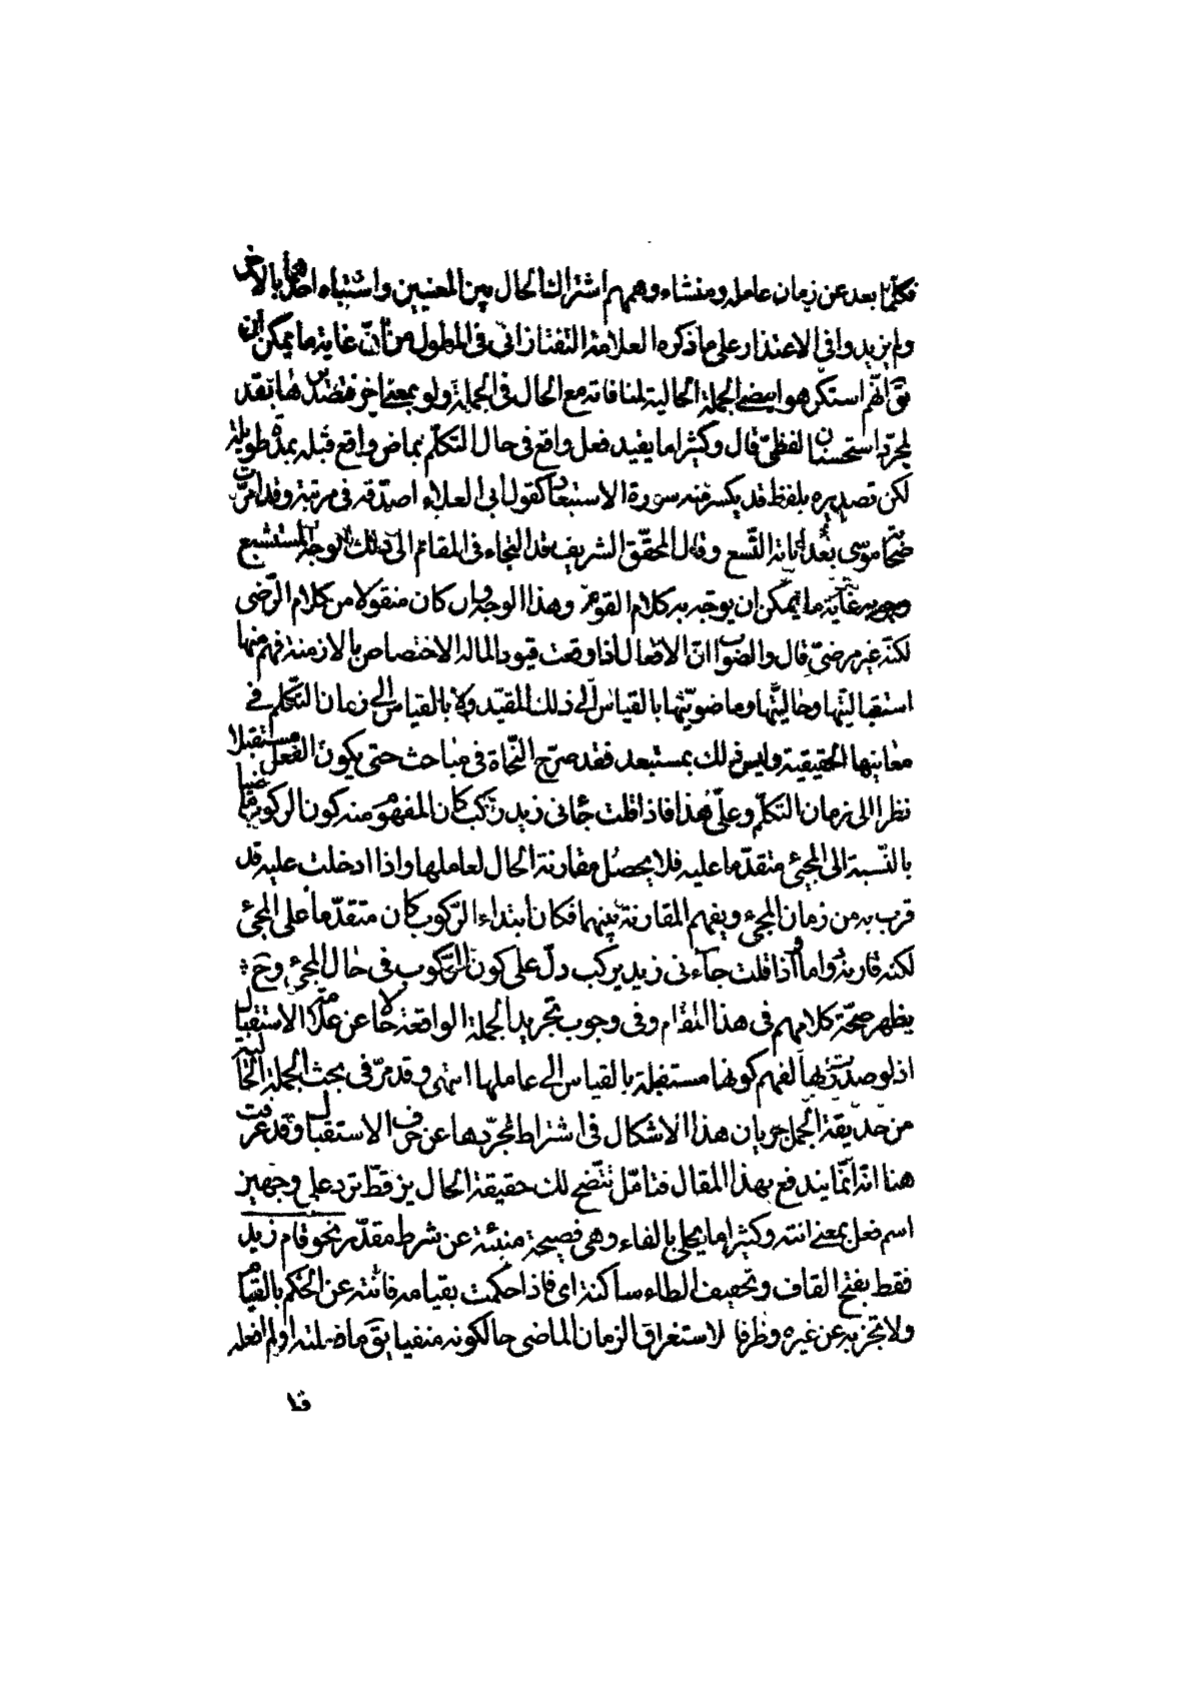 فكلما بعد عن زمان عامله ومنشاء وهمهم اشتراك الحال بين المعنيين واشتباه احدهما بالاخر
ولم يزيدوا في الاعتذار على ما ذكره العلامة التفتازاني في المطول من انّ غاية ما يمكن ان
يق انهم استكرهوا الجملة الحالية لمنافاته مع الحال في الجملة ولو بمعنى اخر فتصديرها بقد
لمجرّد استحسان لفظيّ قال وكثيرا ما يفيد فعل واقع في حال التكلّم بماض واقع قبله بمدة طويلة
لكن تصديره بلفظ قد يكسر منه سورة الاستبعاد كقول ابي العلاء اصدّقه في مرتبة وقد امترت
صحابة موسى بعد اياته التّسع وقال المحقّق الشريف قد التجاء في المقام الى ذلك الوجه المستشبع
وجوبه غاية ما يمكن ان يوجّه به كلام القوم وهذا الوجه وان كان منقولا من كلام الرّضى
لكنّه غير مرضيّ قال والصّواب انّ الافعال اذا وقعت قيودا لما له الاختصاص بالازمنة فهم منها
استقباليّتها وحاليّتها وماضويّتها بالقياس الى ذلك المقيّد ولا بالقياس الى زمان التكلم في
معانيها الحقيقية وليس ذلك بمستبعد فقد صرّح النّحاة في مباحث حتى يكون الفعل مستقبلا
نظرا الى زمان التكلّم وعلى هذا فاذا قلت جائنى زيد ركب كان المفهوم منه كون الركوب ماضيا
بالنّسبة الى المجيئ متقدّما عليه فلا يحصل مقارنة الحال لعاملها واذا ادخلت عليه قد
قرب به من زمان المجيء ويفهم المقارنة بينهما فكان ابتداء الرّكوب كان متقدّما على المجئ
لكنه قارنه دواما واذا قلت جآءنى زيد يركب دلّ على كون الرّكوب في حال المجيء وح
يظهر صحّة كلامهم في هذا المقام وفى وجوب تجريد الجملة الواقعة حالا عن علامة الاستقبال
اذ لو صدّرت بها لفهم كونها مستقبلة بالقياس الى عاملها انتهى وقد مرّ فى بحث الجملة الحالية
من حديقة الجمل جريان هذا الاشكال في اشتراط تجرّدها عن حرف الاستقبال وقد عرفت
هنا انّه انّما يندفع بهذا المقال فتامّل يتّضح لك حقيقة الحال قط ترد على وجهين
اسم فعل بمعنى انته وكثيرا ما يحلى بالفاء وهى فصيحة منبئة عن شرط مقدّر نحو قام زيد
فقط بفتح القاف وتخفيف الطاء ساكنة اى فاذا حكمت بقيامه فانته عن الحكم بالقيام
ولا تخبر به عن غيره وظرفا لاستغراق الزمان الماضى حالكونه منفيا يق ما فعلته او لم افعله
قط